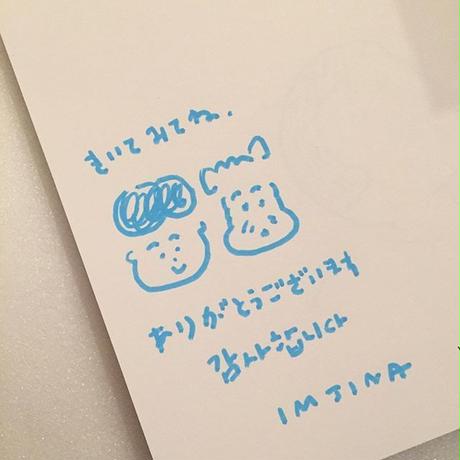 きいてみてね.
ありがとうございます
감사합니다
IMJINA